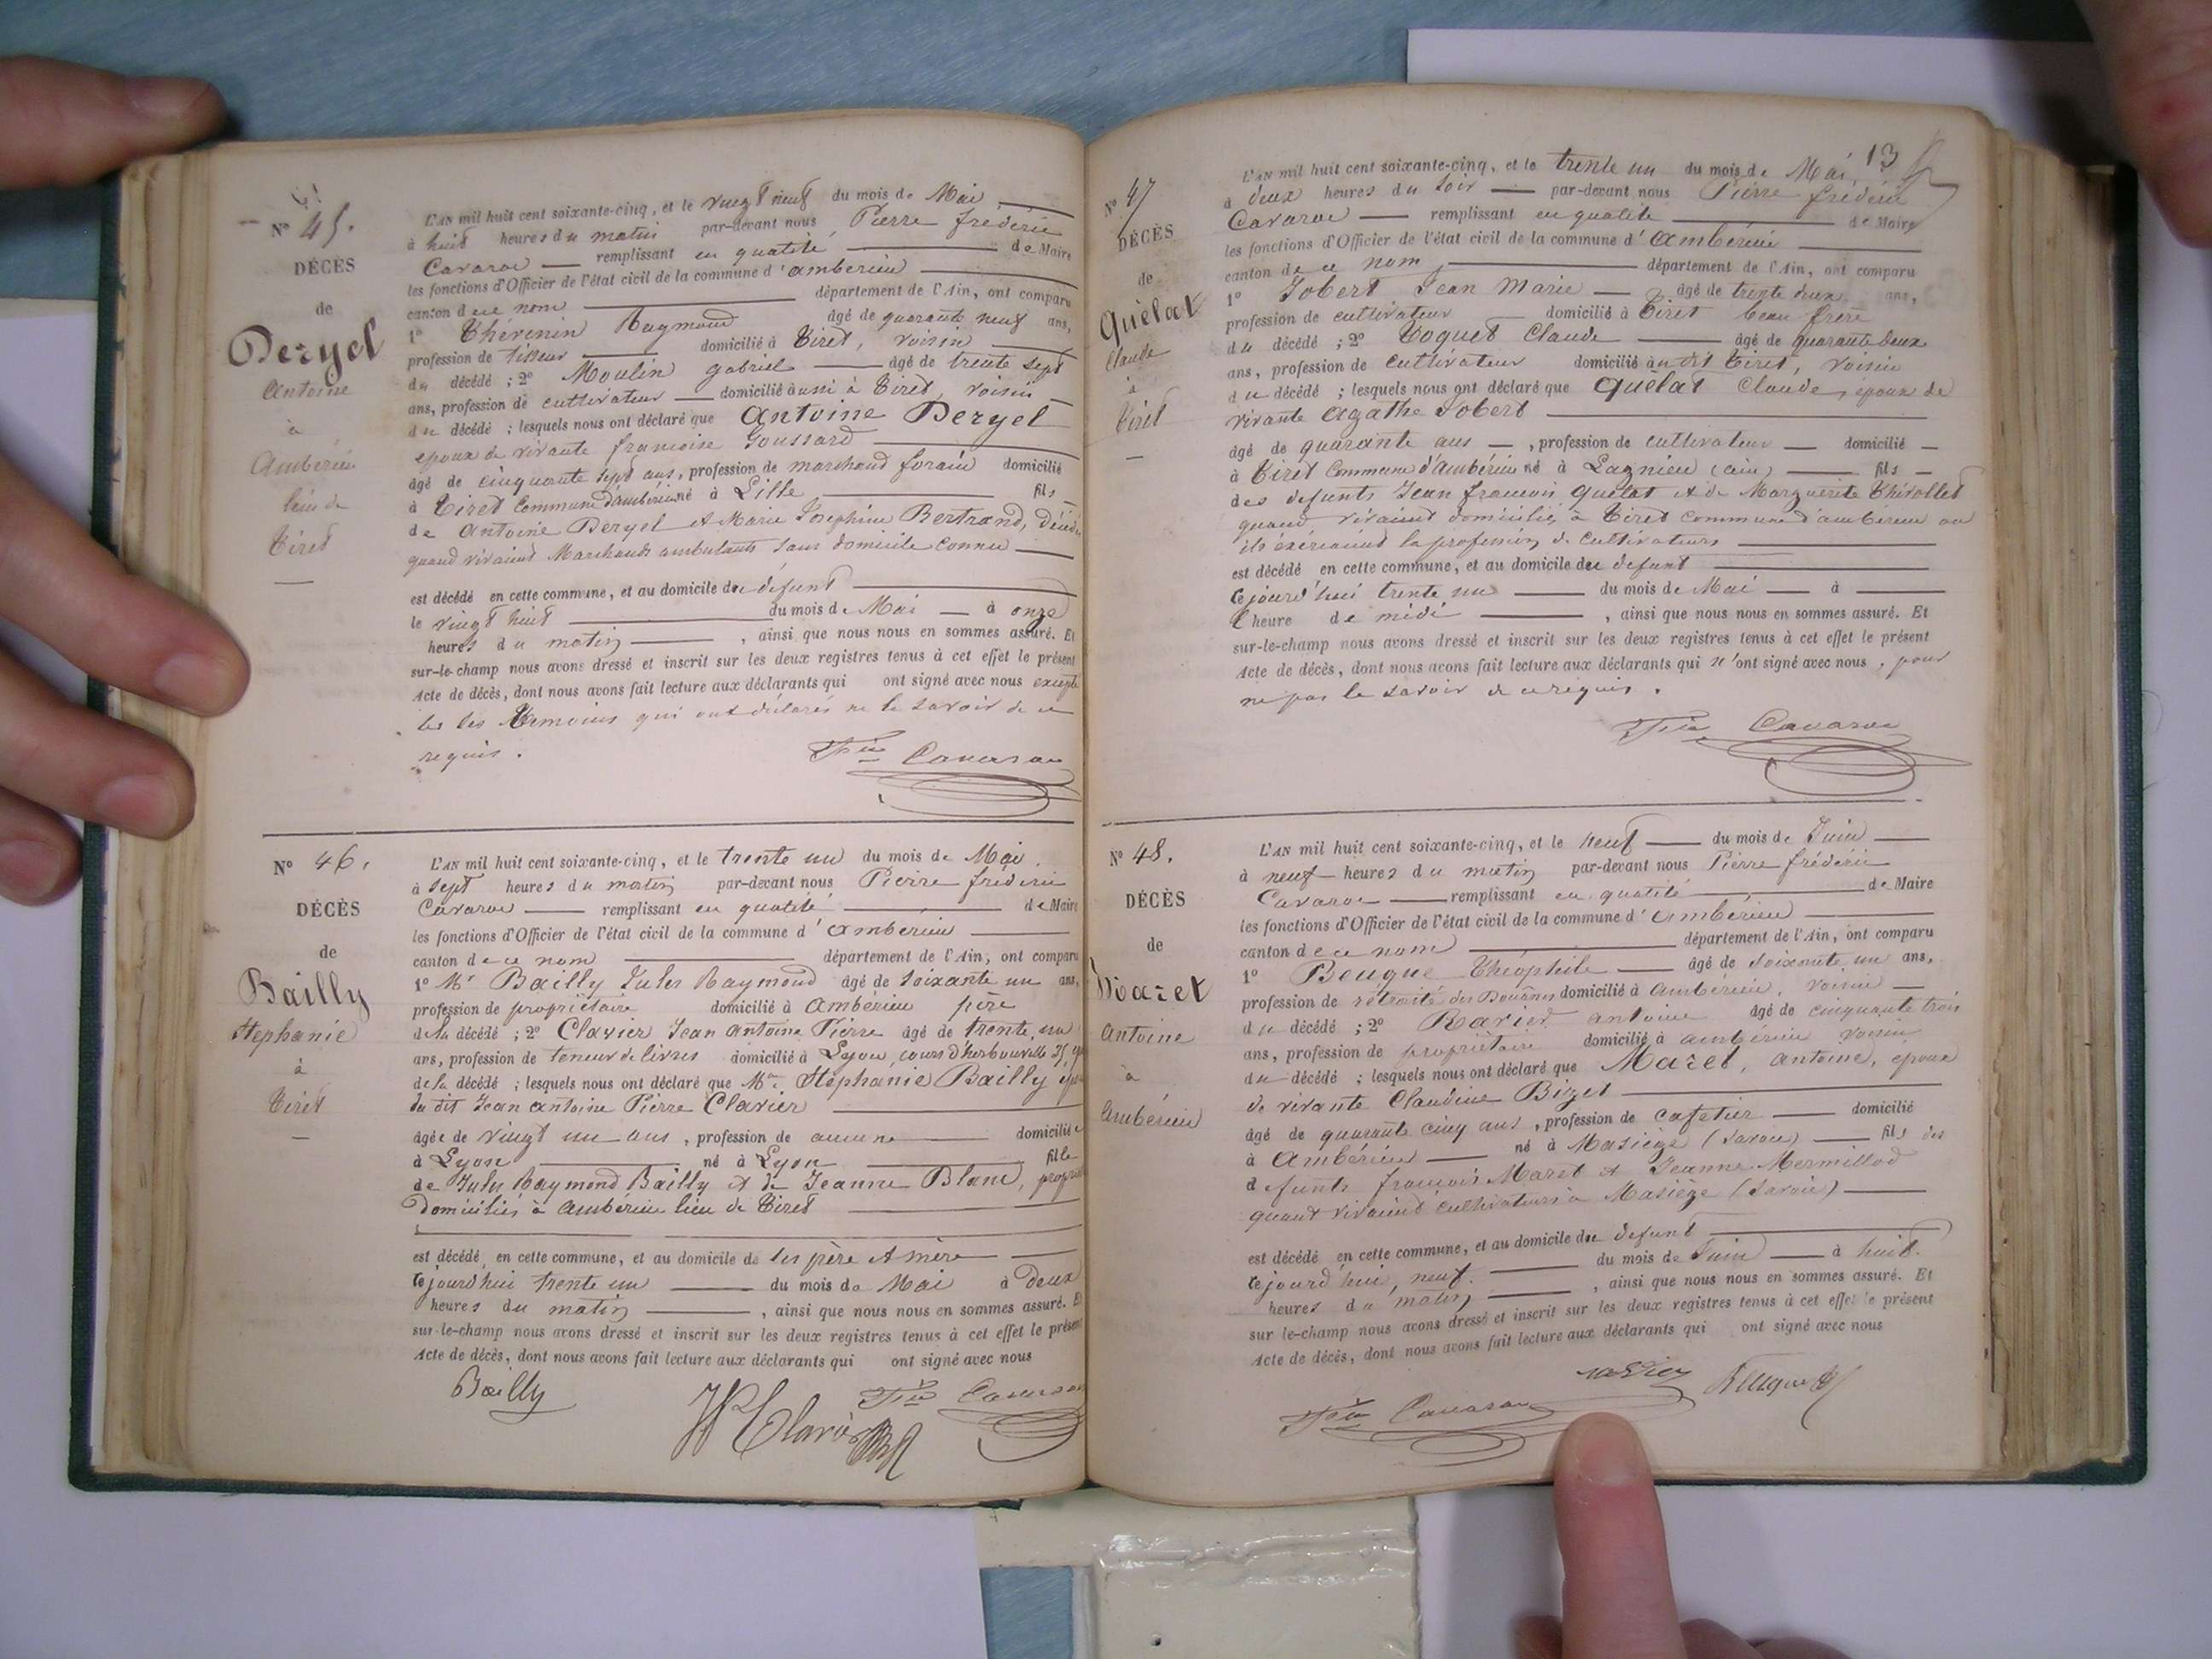 N° 45.
DÉCÈS
de
Deryel
Antoine
à
Ambérieu
lieu de
Tiret
L'AN mil huit cent soixante-cinq, et le vingt neuf du mois de Mai
à huit heures du matin par-devant nous, Pierre frédéric
Cavaroc remplissant en qualité de Maire
les fonctions d'Officier de l'état civil de la commune d'ambérieu
canton de ce nom département de l'Ain, ont comparu
1° Thévenin Raymond âgé de quarante neuf ans,
profession de tisseur domicilié à Tiret, voisin
du décédé ; 2° Moulin gabriel âgé de trente sept
ans, profession de cultivateur domicilié aussi à Tiret, voisin
du décédé ; lesquels nous ont déclaré que Antoine Deryel
epoux de vivante françoise Goussard
âgé de cinquante sept ans, profession de marchand forain domicilié
à Tiret Commune d'ambérieu né à Lille fils
de Antoine Deryel et Marie Josephine Bertrand, décédés
quand vivaient Marchands ambulants sans domicile connu
est décédé en cette commune, et au domicile du défunt
le vingt huit du mois de Mai à onze
heures du matin, ainsi que nous nous en sommes assuré. Et
sur-le-champ nous avons dressé et inscrit sur les deux registres tenus à cet effet le présent
Acte de décès, dont nous avons fait lecture aux déclarants qui ont signé avec nous excepté
les témoins qui ont déclarés ne le savoir de ce
requis.
Fric Cavaroc
N° 46.
DÉCÈS
de
Bailly
Stephanie
à
Tiret
L'AN mil huit cent soixante-cinq, et le trente un du mois de Mai.
à sept heures du matin par-devant nous Pierre fréderic
Cavaroc remplissant en qualité de Maire
les fonctions d'Officier de l'état civil de la commune d'ambérieu
canton de ce nom département de l'Ain, ont comparu
1° Mr Bailly Jules Raymond âgé de soixante un ans,
profession de propriétaire domicilié à Ambérieu père
de la décédé ; 2° Clavier Jean Antoine Pierre âgé de trente un
ans, profession de teneur de livres domicilié à Lyon, cours d'herbouville 25,
de la décédé ; lesquels nous ont déclaré que Me Stéphanie Bailly
du dit Jean antoine Pierre Clavier
âgée de vingt un ans, profession de aucune domiciliée
à Lyon né à Lyon fille
de Jules Raymond Bailly et de Jeanne Blanc,
Domiciliés à Ambérieu lieu de Tiret
est décédé en cette commune, et au domicile de ses père et mère
cejourd'hui trente un du mois de Mai à deux
heures du matin, ainsi que nous nous en sommes assuré. Et
sur-le-champ nous avons dressé et inscrit sur les deux registres tenus à cet effet le présent
Acte de décès, dont nous avons fait lecture aux déclarants qui ont signé avec nous
Bailly
Clavier
Fric Cavaroc
13
N° 47
DÉCÈS
de
Quèlat
Claude
à
Tiret
L'AN mil huit cent soixante-cinq, et le trente un du mois de Mai
à deux heures du soir par-devant nous Pierre fréderic
Cavaroc remplissant en qualité de Maire
les fonctions d'Officier de l'état civil de la commune d'ambérieu
canton de ce nom, département de l'Ain, ont comparu
1° Jobert Jean Marie âgé de trente deux ans,
profession de cultivateur domicilié à Tiret beau frère
du décédé ; 2° Toquet Claude âgé de quarante deux
ans, profession de cultivateur domicilié au dit Tiret, voisin
du décédé ; lesquels nous ont déclaré que Quèlat Claude, epoux de
vivante Agathe Jobert
âgé de quarante ans, profession de cultivateur domicilié
à Tiret Commune d'Ambérieu né à Lagnieu (ain) fils
des defunts Jean françois Quèlat et de Marguerite Thévollet
quand vivaient domiciliés à Tiret commune d'ambérieu ou
ils éxérçaient la profession de cultivateurs
est décédé en cette commune, et au domicile du defunt
cejourd'hui trente un du mois de Mai à
l'heure de midi, ainsi que nous nous en sommes assuré. Et
sur-le-champ nous avons dressé et inscrit sur les deux registres tenus à cet effet le présent
Acte de décès, dont nous avons fait lecture aux déclarants qui n'ont signé avec nous, pour
ne pas le savoir de ce requis.
Fric Cavaroc
N° 48.
DÉCÈS
de
Mazet
Antoine
à
Ambérieu
L'AN mil huit cent soixante-cinq, et le neuf du mois de Juin
à neuf heures du matin par-devant nous Pierre fréderic
Cavaroc remplissant en qualité de Maire
les fonctions d'Officier de l'état civil de la commune d'ambérieu
canton de ce nom département de l'Ain, ont comparu
1° Beuque Théophile âgé de soixante un ans,
profession de rétraité des Douanes domicilié à Ambérieu, voisin
du décédé ; 2° Ravier antoine âgé de cinquante trois
ans, profession de propriétaire domicilié à ambérieu voisin
du décédé ; lesquels nous ont déclaré que Mazet, antoine, epoux
de vivante Claudine Bizet
âgé de quarante cinq ans, profession de cafetier domicilié
à Ambérieu né à Masièze (Savoie) fils des
defunts françois Mazet et Jeanne Mermillod
quand vivaient cultivateurs à Masièze (Savoie)
est décédé en cette commune, et au domicile du defunt
cejourd'hui neuf. du mois de Juin à huit.
heures du matin, ainsi que nous nous en sommes assuré. Et
sur le-champ nous avons dressé et inscrit sur les deux registres tenus à cet effet le présent
Acte de décès, dont nous avons fait lecture aux déclarants qui ont signé avec nous
Fric Cavaroc
Ravier
Beuque